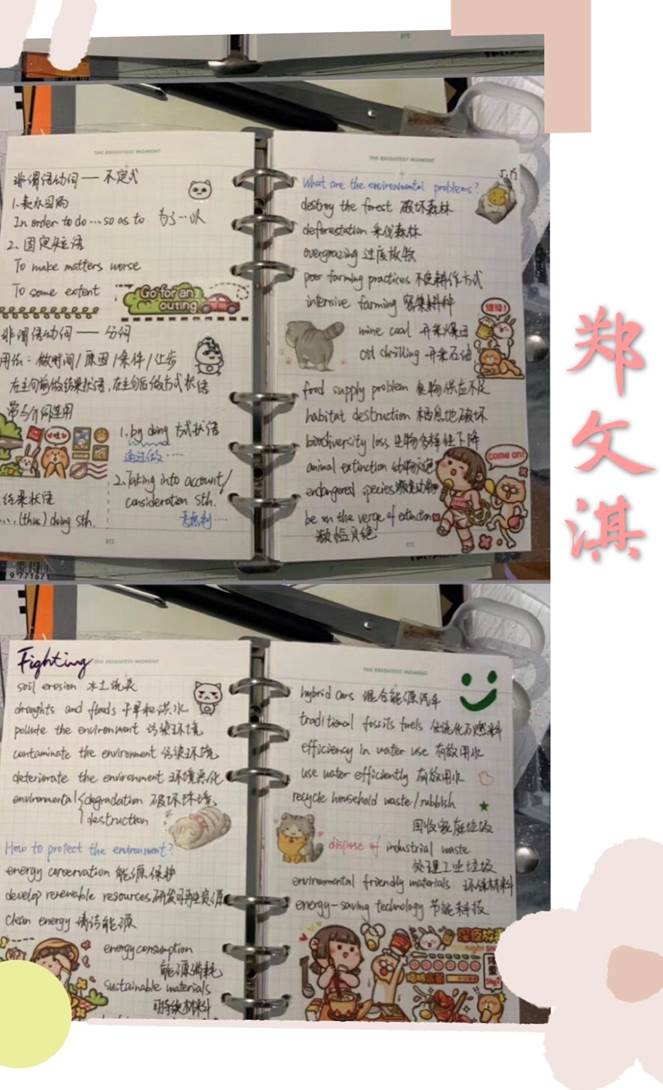 THE BRIGHTEST MOMENT
非谓语动词——不定式
1.表示目的
In order to do…so as to 为了…以
2.固定短语
To make matters worse
To some extent
Go for an outing
非谓语动词——分词
用作：做时间/原因/条件/让步
在主句前做结果状语，在主句后做方式状语
常与介词连用
结果状语
…(thus) doing sth.
1.by doing 方式状语
通过做…
2.Taking into account/
consideration sth.
考虑到…
THE BRIGHTEST MOMENT
What are the environmental problems?
destroy the forest 破坏森林
deforestation 采伐森林
overgrazing 过度放牧
poor farming practices 不良耕作方式
intensive farming 密集耕种
mine coal 开采煤
oil drilling 开采石油
food supply problem 食物供应不足
habitat destruction 栖息地破坏
biodiversity loss 生物多样性下降
animal extinction 动物灭绝
endangered species 濒危动物
be on the verge of extinction
濒临灭绝
come on!
郑文淇
Fighting
THE BRIGHTEST MOMENT
soil erosion 水土流失
droughts and floods 干旱和洪水
pollute the environment 污染环境
contaminate the environment 污染环境
deteriorate the environment 环境恶化
environmental degradation 破坏环境
destruction
How to protect the environment?
energy conservation 能源保护
develop renewable resources 研发可再生资源
clean energy 清洁能源
energy consumption
能源消耗
sustainable materials
可持续材料
THE BRIGHTEST MOMENT
hybrid cars 混合能源汽车
traditional fossils fuels 传统化石燃料
efficiency in water use 有效用水
use water efficiently 有效用水
recycle household waste/rubbish
回收家庭垃圾
dispose of industrial waste
处理工业垃圾
environmental friendly materials 环保材料
energy-saving technology 节能科技